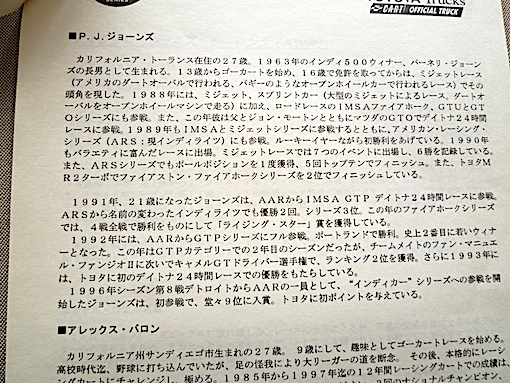 SERIES
TOYOTA Trucks
CART OFFICIAL TRUCK
■P. J. ジョーンズ
カリフォルニア・トーランス在住の27歳。1963年のインディ500ウィナー、パーネリ・ジョーン
ズの長男として生まれる。13歳からゴーカートを始め、16歳で免許を取ってからは、ミジェットレース
(アメリカのダートオーバルで行われる、バギーのようなオープンホイールカーで行われるレース)でその
頭角を現した。1988年には、ミジェット、スプリントカー(大型のミジェットによるレース。ダートオ
ーバルをオープンホイールマシンで走る)に加え、ロードレースのIMSAファイアホーク、GTUとGT
Oシリーズにも参戦。また、この年彼は父とジョン・モートンとともにマツダのGTOでデイトナ24時間
レースに参戦。1989年もIMSAとミジェットシリーズに参戦するとともに、アメリカン・レーシング・
シリーズ(ARS:現インディライツ)にも参戦。ルーキーイヤーながら初勝利をあげている。1990年
もバラエティに富んだレースに出場。ミジェットレースでは7つのイベントに出場し、6勝を記録している。
また、ARSシリーズでもポールポジションを1度獲得、5回トップテンでフィニッシュ。また、トヨタM
R2ターボでファイアストン・ファイアホークシリーズを2位でフィニッシュしている。
1991年、21歳になったジョーンズは、AARからIMSA GTP デイトナ24時間レースに参戦。
ARSから名前の変わったインディライツでも優勝2回。シリーズ3位。この年のファイアホークシリーズ
では、4戦全戦で勝利をものにして「ライジング・スター」賞を獲得している。
1992年には、AARからGTPシリーズにフル参戦。ポートランドで勝利。史上2番目に若いウィナ
ーとなった。この年はGTPカテゴリーでの2年目のシーズンだったが、チームメイトのファン・マニュエ
ル・ファンジオⅡに次いでキャメルGTドライバー選手権で、ランキング2位を獲得。さらに1993年に
は、トヨタに初のデイトナ24時間レースでの優勝をもたらしている。
1996年シーズン第8戦デトロイトからAARの一員として、“インディカー”シリーズへの参戦を開
始したジョーンズは、初参戦で、堂々9位に入賞。トヨタに初ポイントを与えている。
■アレックス・バロン
カリフォルニア州サンディエゴ市生まれの27歳。9歳にして、趣味としてゴーカートレースを始める。
高校時代迄、野球に打ち込んでいたが、足の怪我により大リーガーの道を断念。その後、本格的にレーシ
ングカートにチャレンジし、極める。1985年から1997年迄の12年間レーシングカートでの成績は、